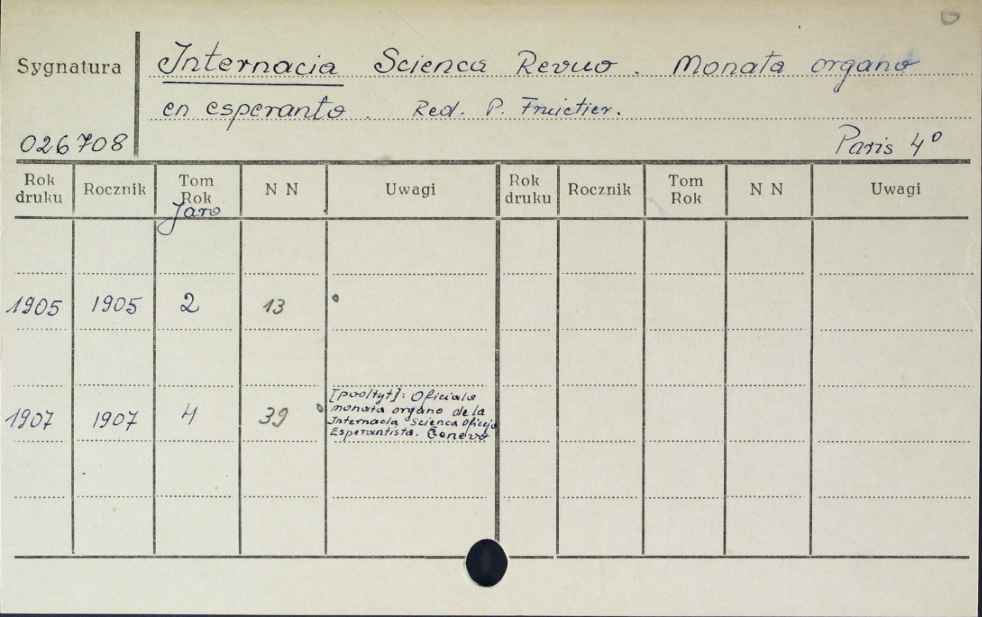 Sygnatura
Internacia Scienca Revuo. Monata organo
en esperanto. Red. P. Fruictier.
026708
Paris 4°
Rok druku Rocznik Tom Rok N N Uwagi Rok druku Rocznik Tom Rok N N Uwagi
Jaro
1905 1905 2 13
1907 1907 4 39 [podtyt]: Oficiala
monata organo de la
Internacia Scienca Oficejo
Esperantista. Genevo